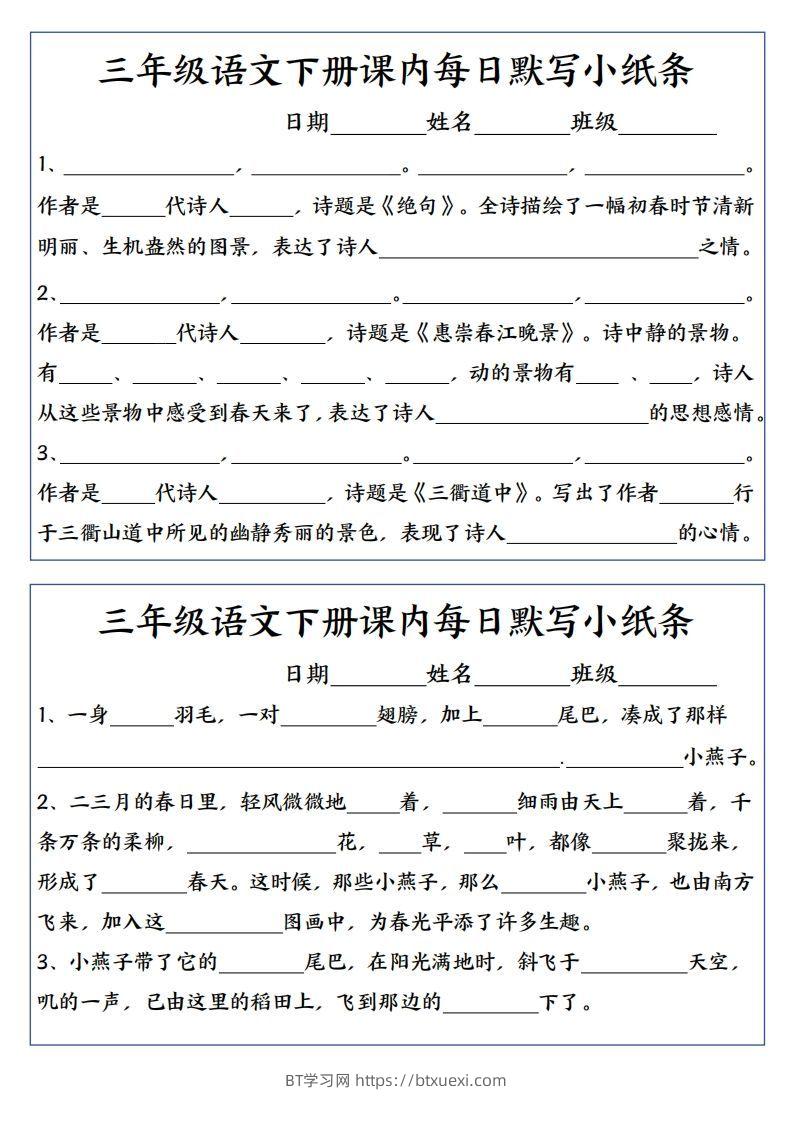 三年级语文下册课内每日默写小纸条
日期________姓名________班级________
1、________________，______________。______________，______________。
作者是______代诗人______，诗题是《绝句》。全诗描绘了一幅初春时节清新
明丽、生机盎然的图景，表达了诗人______________________________之情。
2、_______________，_______________。________________，_______________。
作者是_______代诗人________，诗题是《惠崇春江晚景》。诗中静的景物。
有_____、______、______、______、______，动的景物有____ 、____，诗人
从这些景物中感受到春天来了，表达了诗人____________________的思想感情。
3、_______________，________________。_______________，_______________。
作者是_____代诗人__________，诗题是《三衢道中》。写出了作者_______行
于三衢山道中所见的幽静秀丽的景色，表现了诗人________________的心情。
三年级语文下册课内每日默写小纸条
日期________姓名________班级________
1、一身______羽毛，一对_________翅膀，加上_______尾巴，凑成了那样
_________________________________________________.___________小燕子。
2、二三月的春日里，轻风微微地_____着，_______细雨由天上______着，千
条万条的柔柳，______________花，____草，____叶，都像_______聚拢来，
形成了________春天。这时候，那些小燕子，那么________小燕子，也由南方
飞来，加入这___________图画中，为春光平添了许多生趣。
3、小燕子带了它的________尾巴，在阳光满地时，斜飞于__________天空，
叽的一声，已由这里的稻田上，飞到那边的_________下了。
BT学习网 https://btxuexi.com